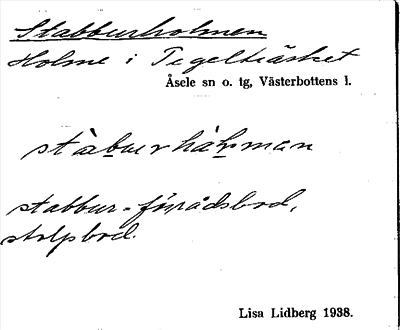 Stabburholmen
Holme i Tegelträsket
Åsele sn o. tg, Västerbottens l.
stàburhåḷman
stabbur = förrådsbod,
stolpbod.
Lisa Lidberg 1938.